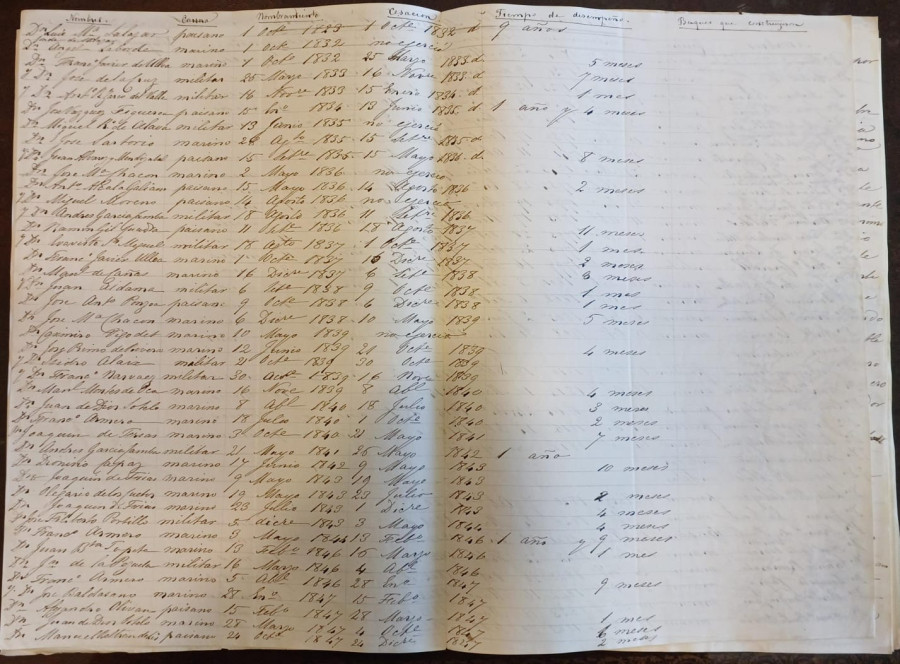 Nombres Causa Nombramiento Cesacion Tiempo de desempeño Buques que construyeron
Dn Luis Ma Salazar paisano 1 Octe 1823 1 Octe 1832 d 9 años
Dn Angel Laborde marino 1 Oct 1832 no ejerció
Dn Franco Javier de Ulloa marino 1 Oct 1832 25 Marzo 1833 d 5 meses
Dn José de la Cruz militar 25 Marzo 1833 16 Nove 1833 d 7 meses
Dn militar 16 Nove 1833 15 Enero 1834 d 1 mes
Dn José Vazquez Figueroa paisano 15 Eno 1834 13 Junio 1835 d 1 año y 4 meses
Dn Miguel Rdo de Alava militar 13 Junio 1835 no ejerció
Dn José Sartorio marino 28 Agto 1835 15 Setre 1835 d
Dn Juan Alvarez Mendizabal paisano 15 Setre 1835 15 Mayo 1836 d 8 meses
Dn José Ma Chacon marino 2 Mayo 1836 no ejerció
Dn Anto Alcala Galiano paisano 15 Mayo 1836 14 Agosto 1836 2 meses
Dn Miguel Moreno paisano 14 Agosto 1836 no ejerció
Dn Andres Garcia Camba militar 18 Agosto 1836 11 Setre 1836
Dn Ramon Gil Cuadra paisano 11 Setre 1836 18 Agosto 1837 11 meses
Dn Evaristo Sn Miguel militar 18 Agto 1837 1 Octe 1837 1 mes
Dn Franco Javier Ulloa marino 1 Octe 1837 16 Dicre 1837 2 meses
Dn Manuel de Cañas marino 16 Dicre 1837 6 Setre 1838 8 meses
Dn Juan Aldama militar 6 Setre 1838 9 Octe 1838 1 mes
Dn José Anto Ponzoa paisano 9 Octe 1838 6 Dicre 1838 1 mes
Dn José Ma Chacon marino 6 Dicre 1838 10 Mayo 1839 5 meses
Dn Casimiro Vigodet marino 10 Mayo 1839 no ejerció
Dn José Primo de Rivera marino 12 Junio 1839 21 Octe 1839 4 meses
Dn Isidro Alaix militar 21 Octe 1839 30 Octe 1839
Dn Franco Narvaez militar 30 Octe 1839 16 Nove 1839
Dn Manl Montes de Oca marino 16 Nove 1839 8 Abl 1840 4 meses
Dn Juan de Dios Sotelo marino 8 Abl 1840 18 Julio 1840 3 meses
Dn Franco Armero marino 18 Julio 1840 1 Octe 1840 2 meses
Dn Joaquin de Frias marino 3 Octe 1840 21 Mayo 1841 7 meses
Dn Andres Garcia Camba militar 21 Mayo 1841 26 Mayo 1842 1 año
Dn Dionisio Capaz marino 17 Junio 1842 9 Mayo 1843 10 meses
Dn Joaquin de Frias marino 9 Mayo 1843 19 Mayo 1843
Dn Olegario de los Cuetos marino 19 Mayo 1843 23 Julio 1843 2 meses
Dn Joaquin Frias marino 23 Julio 1843 1 Dicre 1843 4 meses
Dn José Filiberto Portillo militar 5 dicre 1843 3 Mayo 1844 4 meses
Dn Franco Armero marino 3 Mayo 1844 13 Febo 1846 1 año y 9 meses
Dn Juan Bta Topete marino 13 Febo 1846 16 Marzo 1846 1 mes
Dn Jn de la Pezuela militar 16 Marzo 1846 4 Abl 1846
Dn Franco Armero marino 5 Abl 1846 28 Eno 1847 9 meses
Dn José Baldasano marino 28 Eno 1847 15 Febo 1847
Dn Alejandro Olivan paisano 15 Febo 1847 28 Marzo 1847 1 mes
Dn Juan de Dios Sotelo marino 28 Marzo 1847 4 Octe 1847 6 meses
Dn Manuel paisano 24 Oct 1847 24 Dicre 1847 2 meses